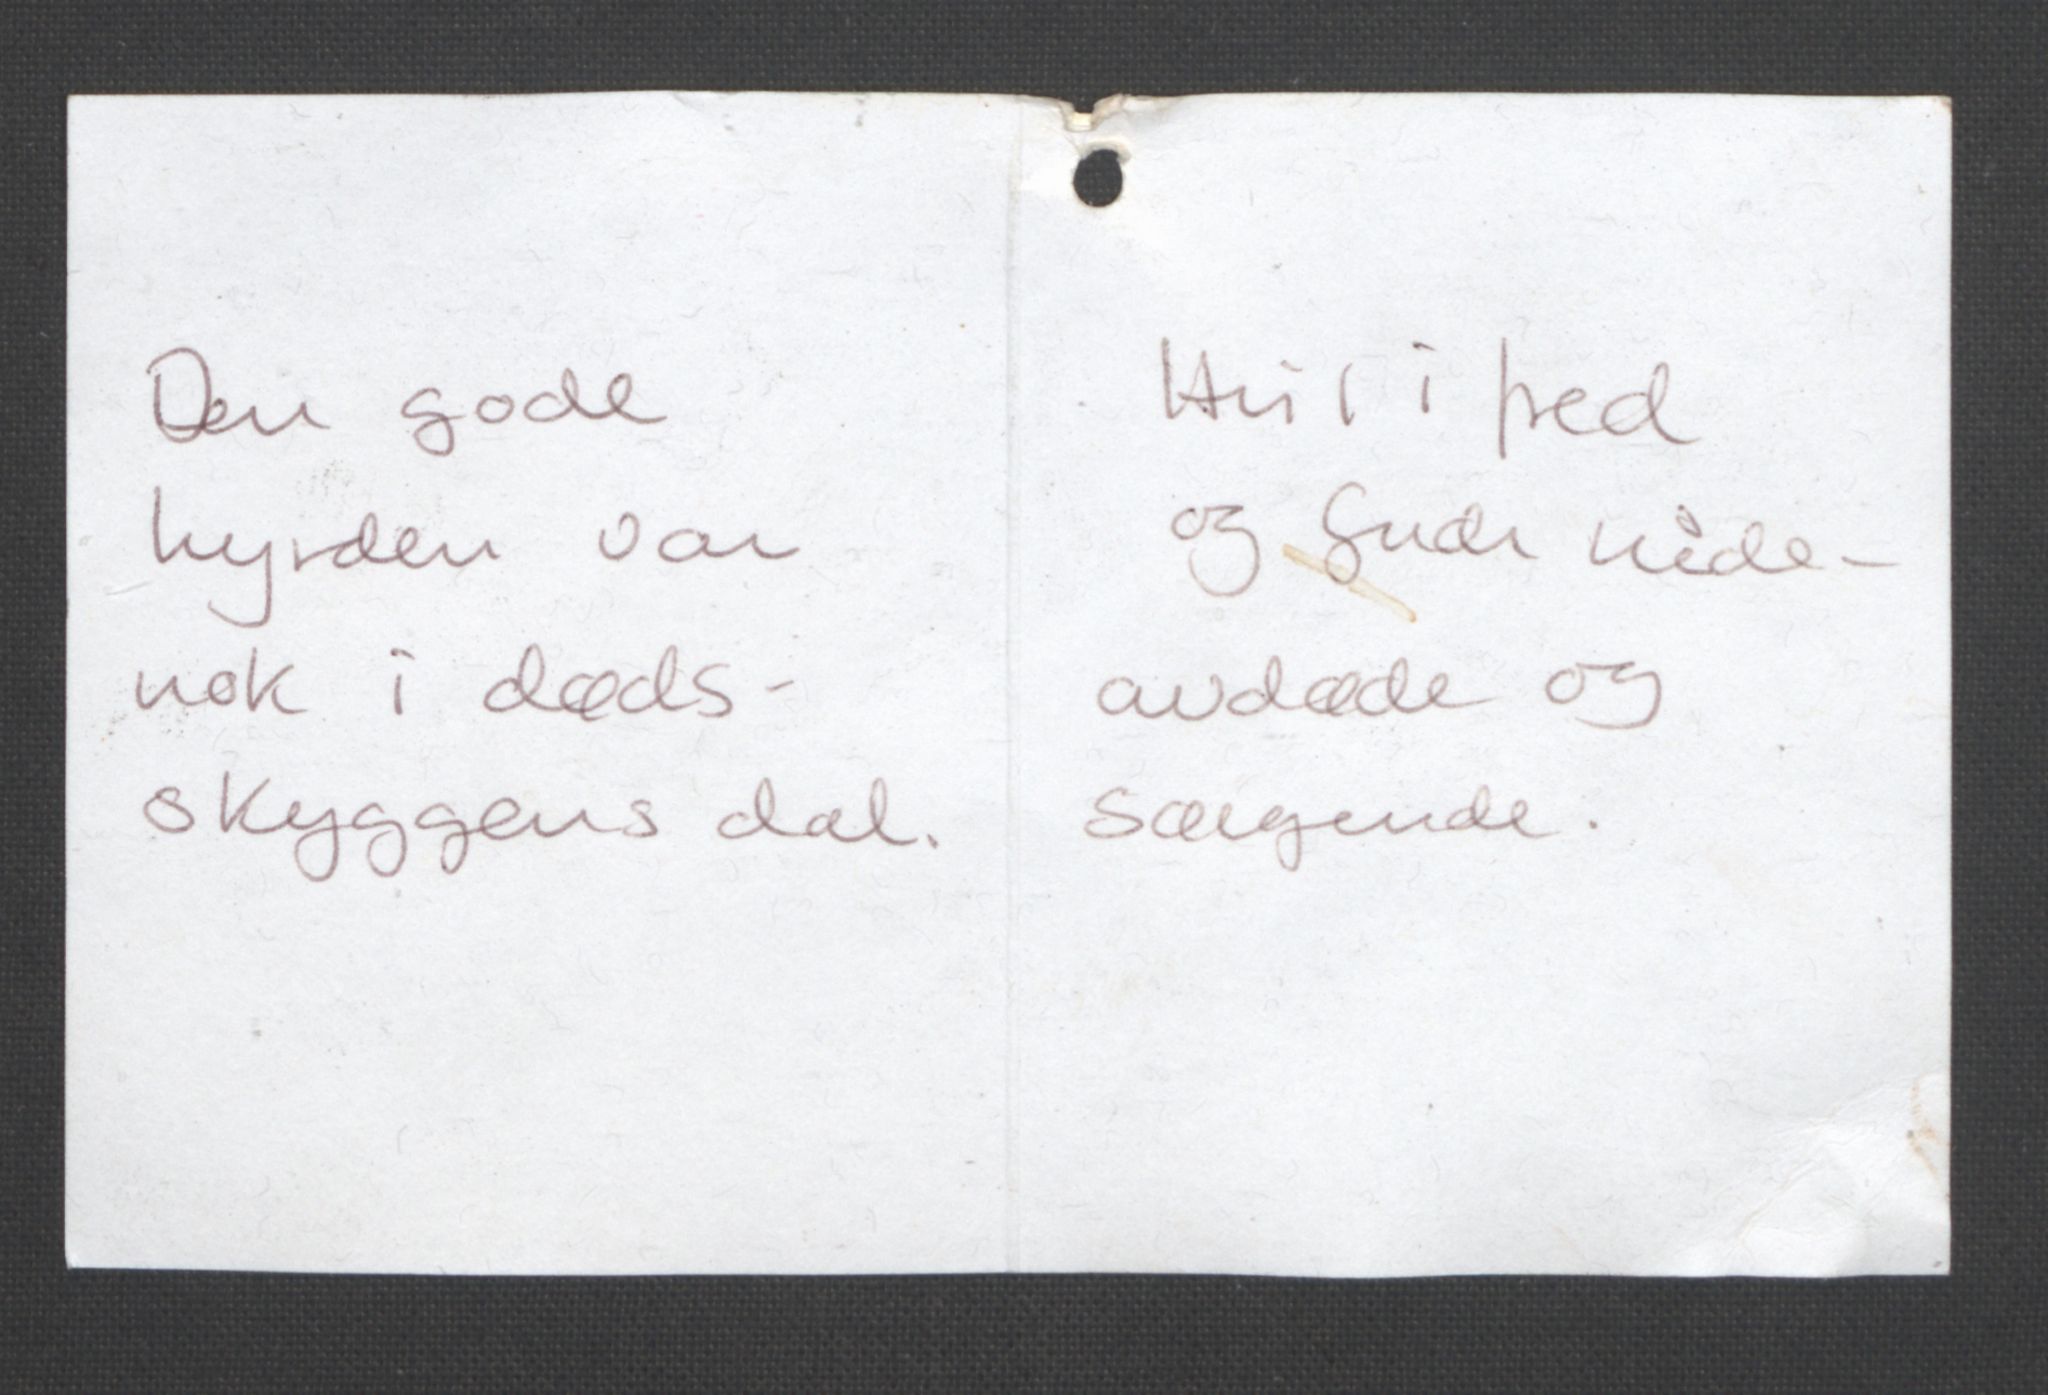 Den gode
hyrden var
nok i døds-
skyggens dal.
Hvil i fred
og Guds nåde -
avdøde og
sørgende.